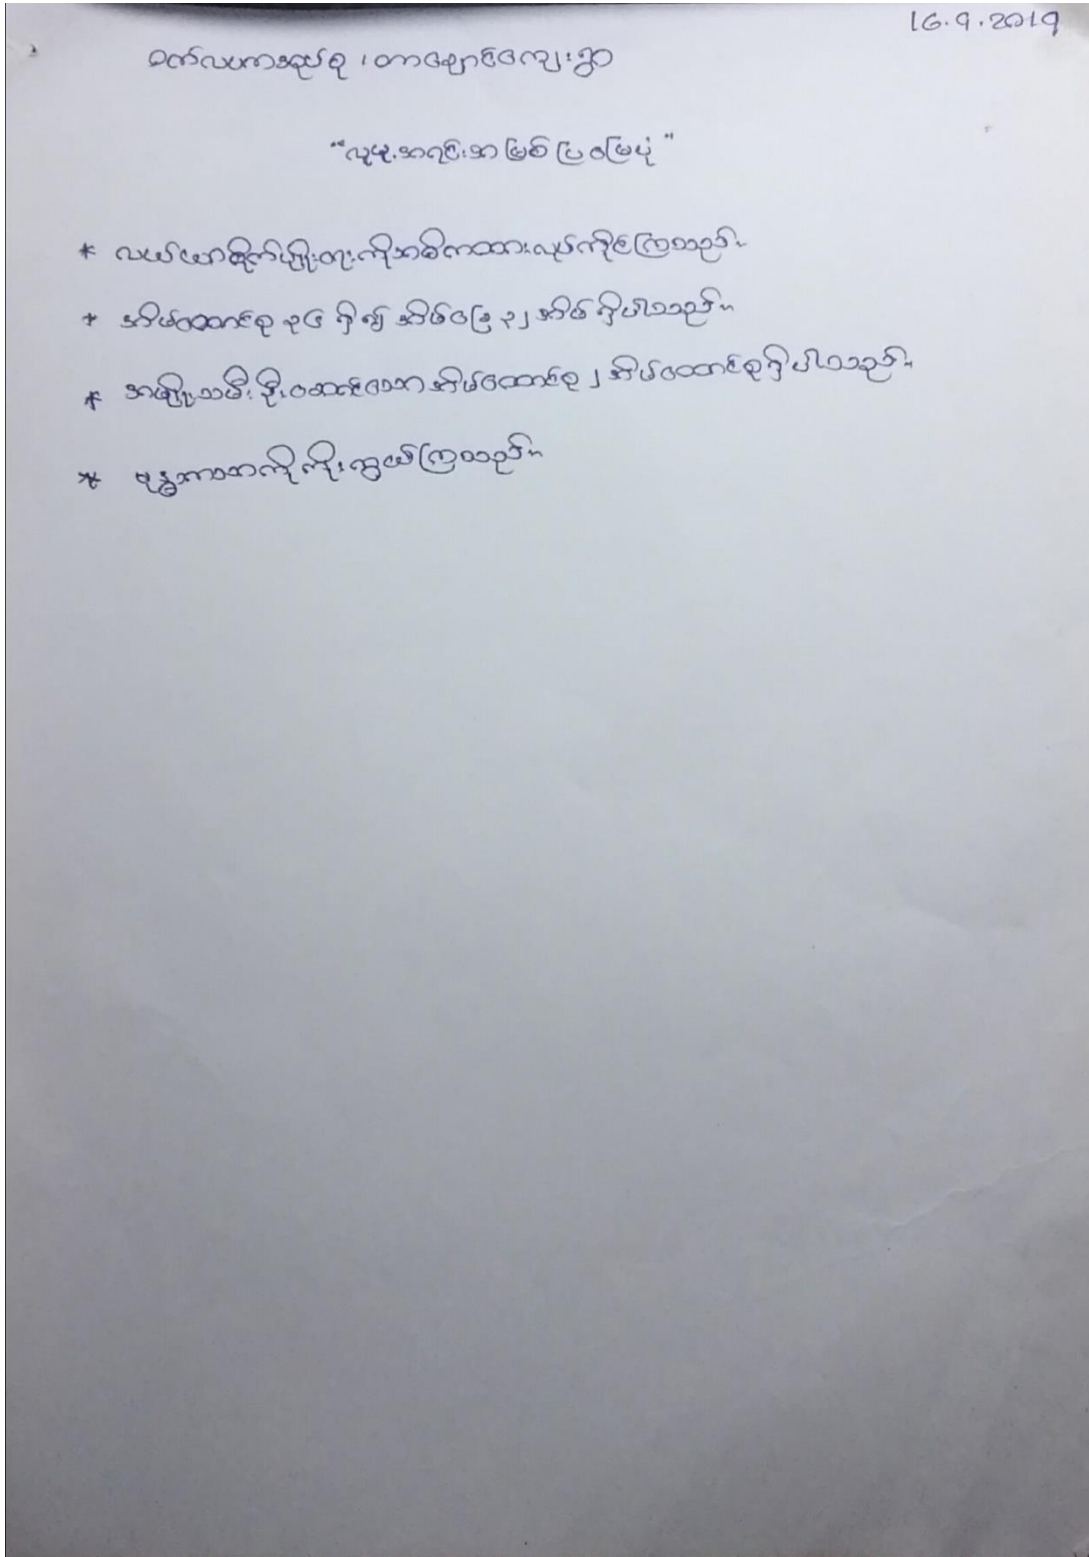 16.9.2019
ဝက်လပကာအုပ်စု ၊ တာချောင်ကျေးရွာ
"လူမှု.အရင်းအမြစ်ပြမြေပုံ"
* လယ်ယာစိုက်ပျိုးရေးကိုအဓိကထားလုပ်ကိုင်ကြသည်။
* အိမ်ထောင်စု ၃၄ ရှိ၍ အိမ်ခြေ ၃၂ အိမ် ရှိပါသည်။
* အမျိုးသမီး ဦးဆောင်သော အိမ်ထောင်စု ၂ အိမ်ထောင်စုရှိပါသည်။
* ဗုဒ္ဓဘာသာကိုကိုးကွယ်ကြသည်။